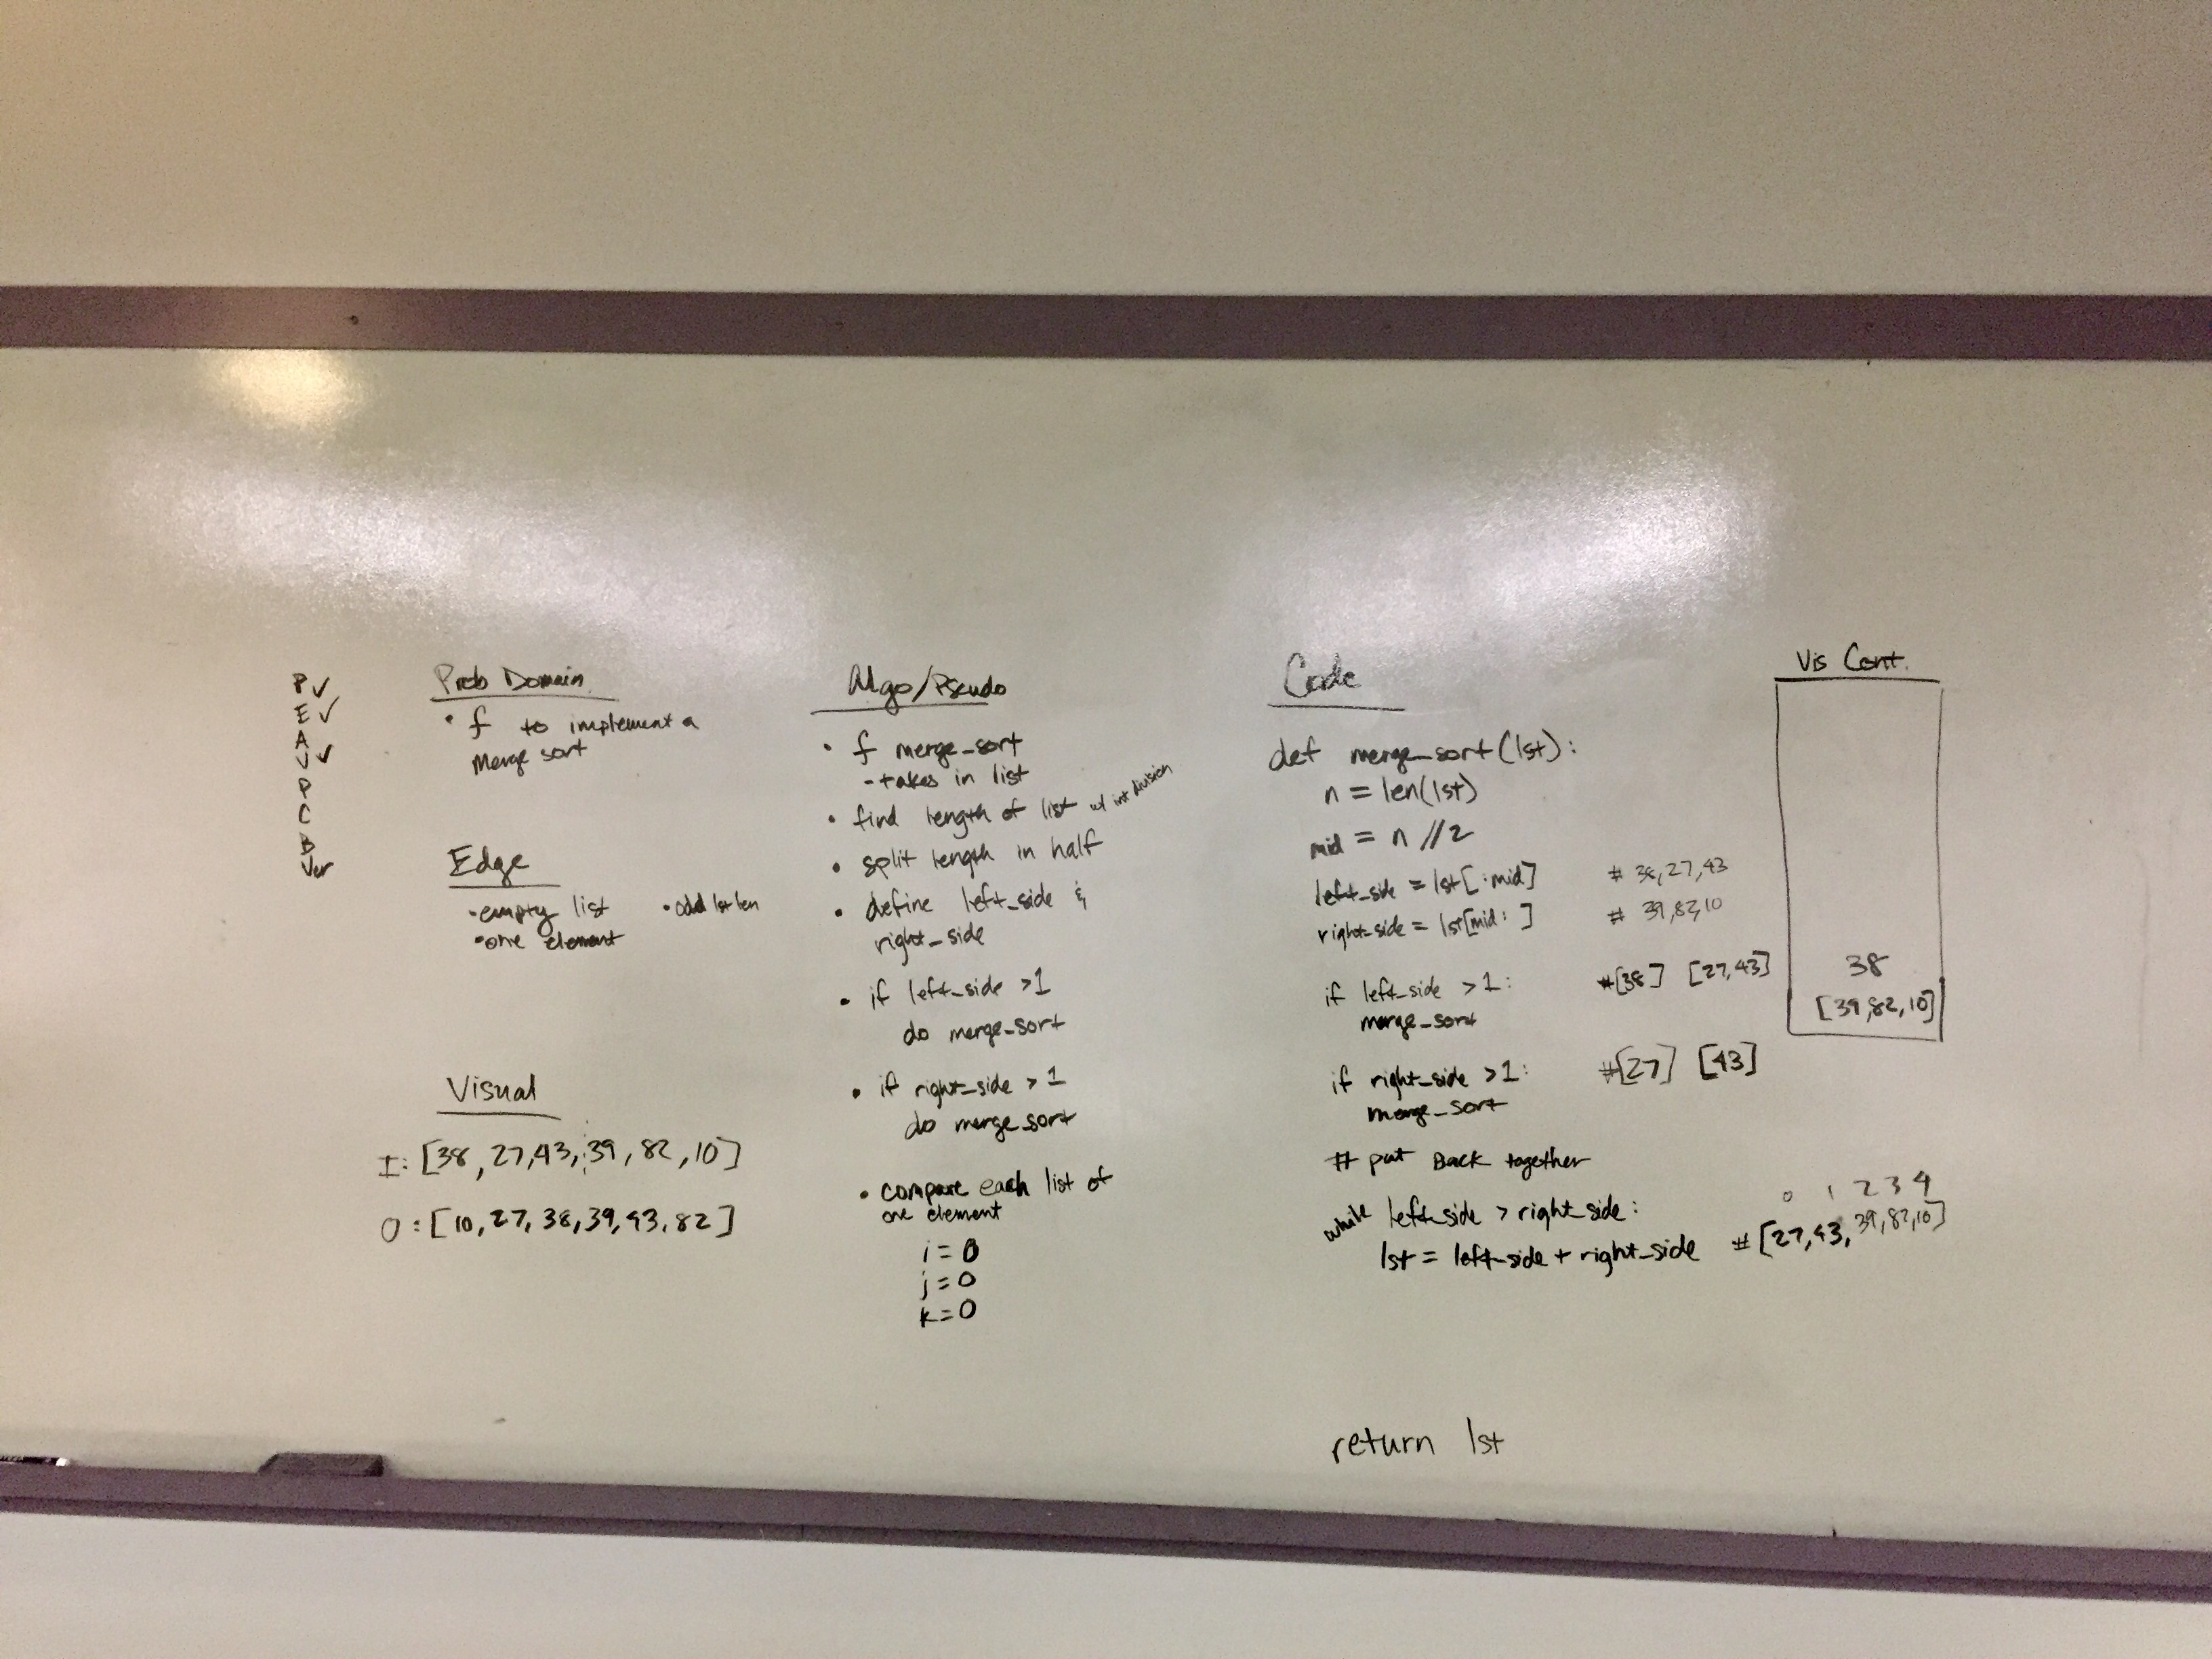 P ✓
E ✓
A
V ✓
P
C
B
Ver
Prob Domain
• f to implement a
Merge sort
Edge
• empty list • odd lst len
• one element
Visual
I: [38, 27, 43, 39, 82, 10]
O: [10, 27, 38, 39, 43, 82]
Algo/Pseudo
• f merge_sort
- takes in list
• find length of list w/ int division
• split length in half
• define left_side &
right_side
• if left_side >1
do merge_sort
• if right_side >1
do merge_sort
• compare each list of
one element
i = 0
j = 0
k = 0
Code
def merge_sort(lst):
n = len(lst)
mid = n //2
left_side = lst[:mid] # 38, 27, 43
right_side = lst[mid: ] # 39, 82, 10
if left_side >1: #[38] [27,43]
merge_sort
if right_side >1: #[27] [43]
merge_sort
# put Back together
while left_side > right_side:
0 1 2 3 4
lst = left_side + right_side # [27, 43, 39, 82, 10]
return lst
Vis Cont.
38
[39, 82, 10]